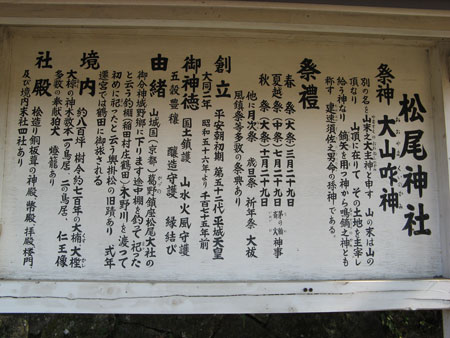 松尾神社
祭神 大山咋神
別の名を山末之大主神と申す 山の末は山の
頂なり 山頂に在りて その土地を主宰し
給う神なり 鏑矢を用つ神から鳴鏑之神とも
称す 建速須佐之男命の孫神である。
祭禮
春祭(大祭)三月二十九日
夏越祭(中祭)七月二十九日 神事
秋祭(大祭)十月二十九日
他に月次祭 歳旦祭 祈年祭 大祓
風鎮祭等多数の祭典あり
創立 平安朝初期 第五十二代平城天皇
大同二年 昭和五十六年より 千百七十五年前
御神徳 国土鎮護 山水火風守護
五穀豊穰 醸造守護 縁結び
由緒 山城国(京都)葛野鎮座松尾大社の
御分神城野郷に下ります途中棚を釣って祀った
と云う釣棚(稲田村庄鶴田)木野川を渡って
初めに祀ったと云う輿掛松の旧蹟あり 式年
遷宮では鶴田に御旅される
境内 約八百坪 樹令約七百年の大楠 大樫
大椋の神木数本 一の鳥居 二の鳥居 仁王像
多数の奉献石 狛犬 燈籠あり
社殿 桧造り銅板葺の神殿 幣殿 拝殿 楼門
及び境内末社四社あり